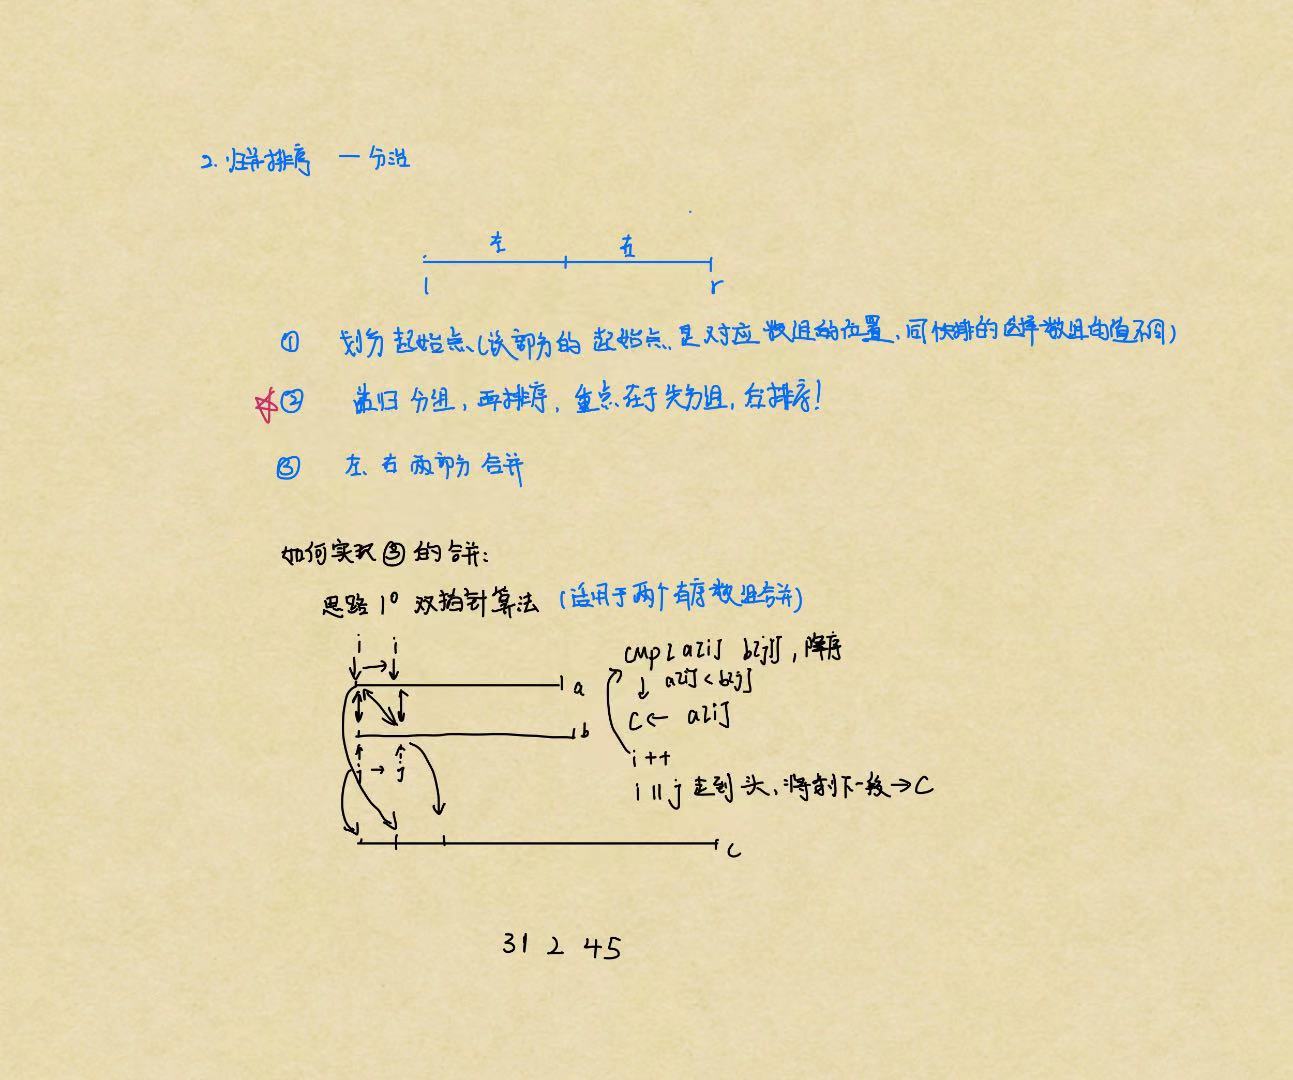 2. 归并排序 — 分治
左 右
l r
① 划分起始点(该部分的起始点是对应数组的位置,同快排的选择数组的值不同)
② 递归分组,再排序,重点在于先分组,后排序!
③ 左、右两部分合并
如何实现③的合并:
思路 1° 双指针算法 (适用于两个有序数组合并)
i → i
a
b
j → j
c
cmp[a[i] b[j]],降序
↓ a[i] < b[j]
C ← a[i]
i ++
i || j 走到头,将剩下一段→C
31 2 45